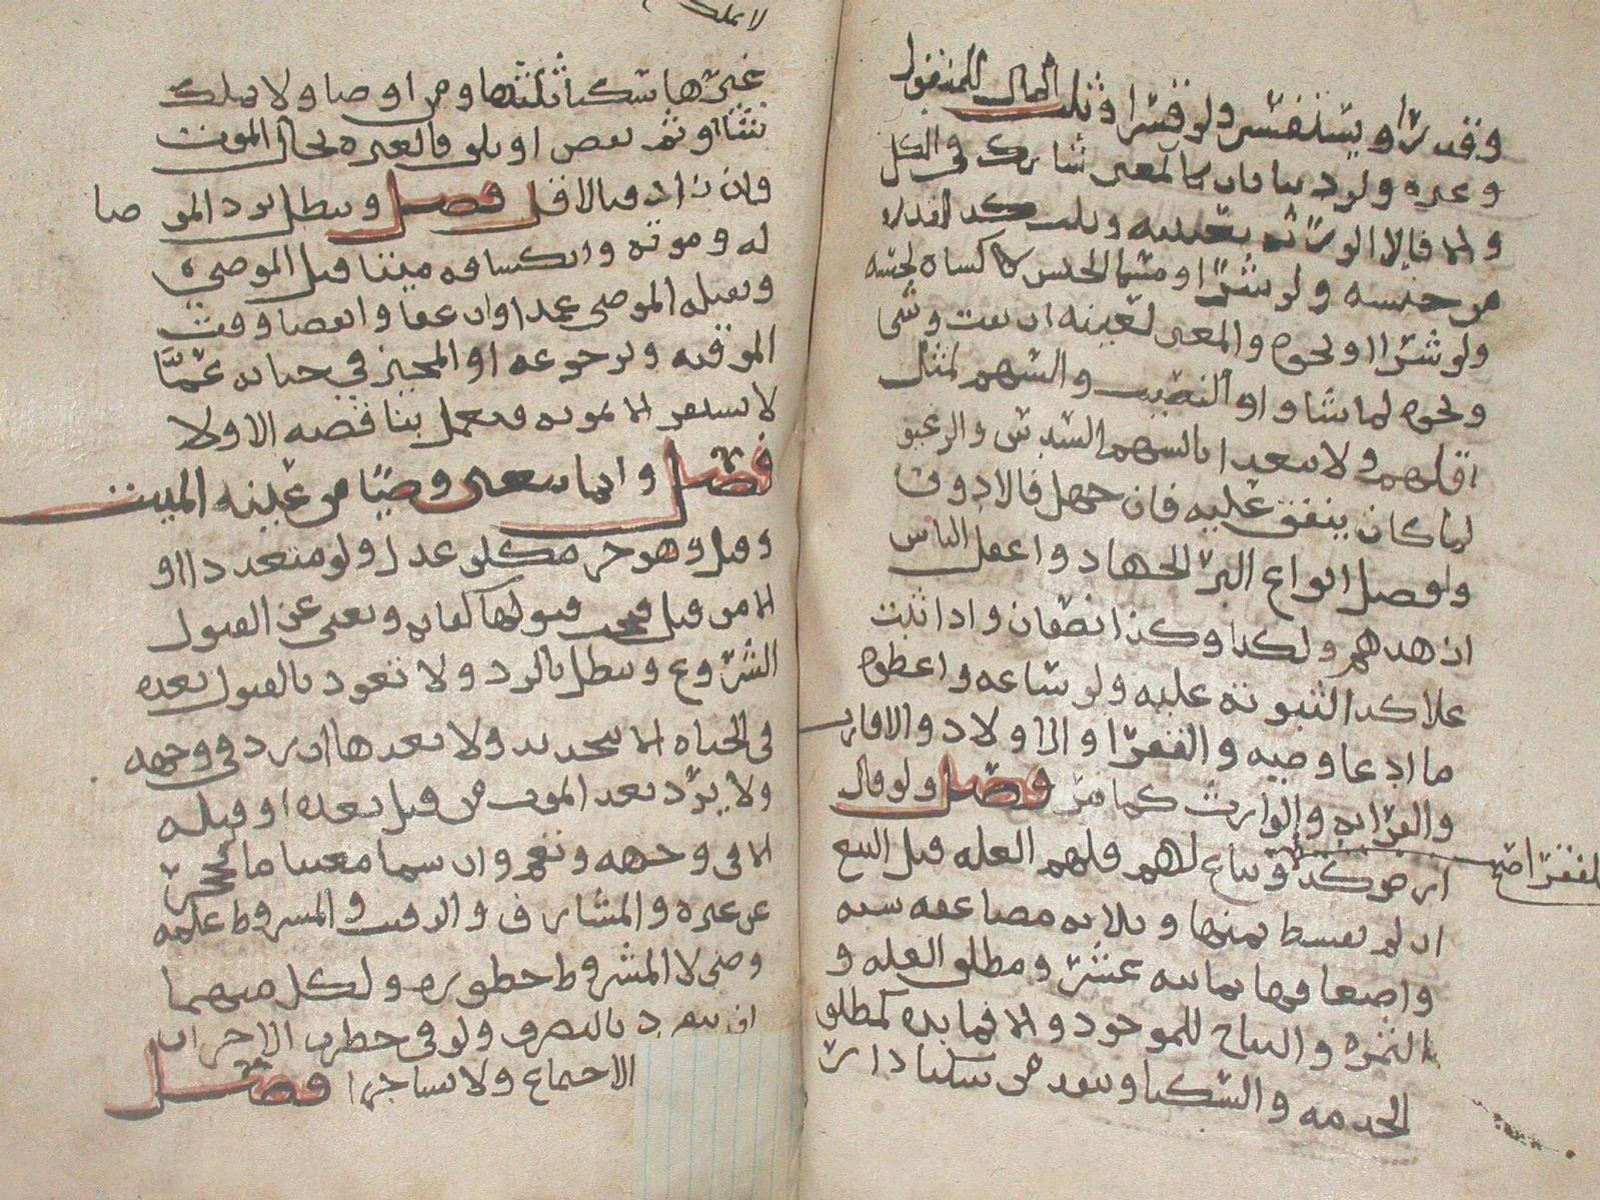 وقدرا ويستفسر ولو قسرا وثلث المال للمنقول
وغيره ولو دينا فان كالمعين شارك في الكل
والا فالا الورثة تعيينه وثلث كذا لقدره
من جنسه ولو شرا ومسما الجنس كالكساه لجنسه
ولو شرا او نحوه والمعين لعينه ان بقت وشي
ونحوه لما شاوا والنصيب والسهم لمثل
اقلهم ولا يتعدا بالسهم السدس والرغيف
لما كان ينفق عليه فان جهل فالادون
وافضل انواع البر الجهاد واعقل الناس
ازهدهم ولكذا وكذا نصفان واذا ثبت
علا كذا لثبوته عليه ولو ساعه واعطوه
ما ادعا وصيه والفقرا والاولاد والاقارب
والقرابه والوارث كما مر فصل ولو قال
ارض كذا للفقرا وتباع لهم فلهم الغله قبل البيع
ان لم يقسط ثمنها وثلاثه مضاعفه ستة
واضعافها ثمانيه عشر ومطلق الغله و
الثمره والنتاج للموجود والا فمايده كمطلق
الخدمه والسكنا وينفذ من سكنا دار
لا يملك
غيرها سكنا ثلثها ومن اوصا ولا يملك
شيا او ثم نقص او تلف فالعبره بحال الموت
فان زاد فبالاقل فصل وتبطل برد الموصا
له وموته وانكشافه ميتا قبل الموصي
وبقتله الموصي عمدا وان عفا وانقضا وقت
الموقته وبرجوعه او المجيز في حياته عما
لا يستقر الا بموته فيعمل بناقضه الاولا
فصل وانما يتعين وصيا من عينه الميت
وقبل وهو حر مكلف عدل ولو متعددا او
الا من قبل فيجب قبولها كفايه ويغني عن القبول
الشروع وتبطل بالرد ولا تعود بالقبول بعده
في الحياه الا بتجديد ولا بعدها ان رد في وجهه
ولا يرد بعد الموت من قبل بعده او قبله
الا في وجهه وتعم وان سما معينا ما لم يحجر
عن غيره والمشارف والرقيب والمشروط علمه
وصي لا المشروط حضوره ولكل منهما
ان ينفرد بالتصرف ولو في حضره الاخر ان
الاجتماع ولا تشاجرا فصل